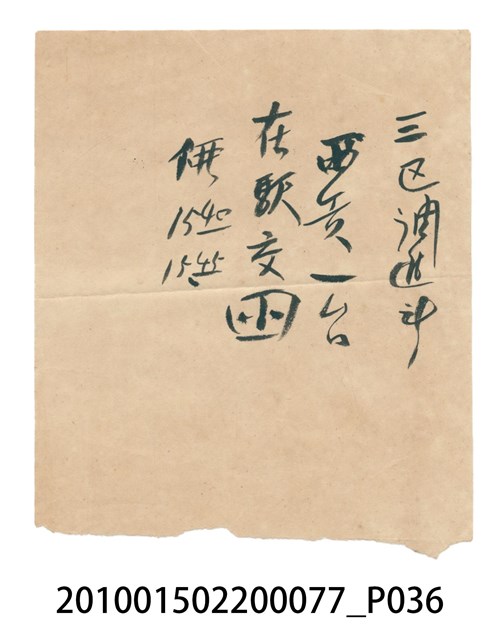 三区调进計
西贡一台
在駅交函
俩
1540
1545
201001502200077_P036